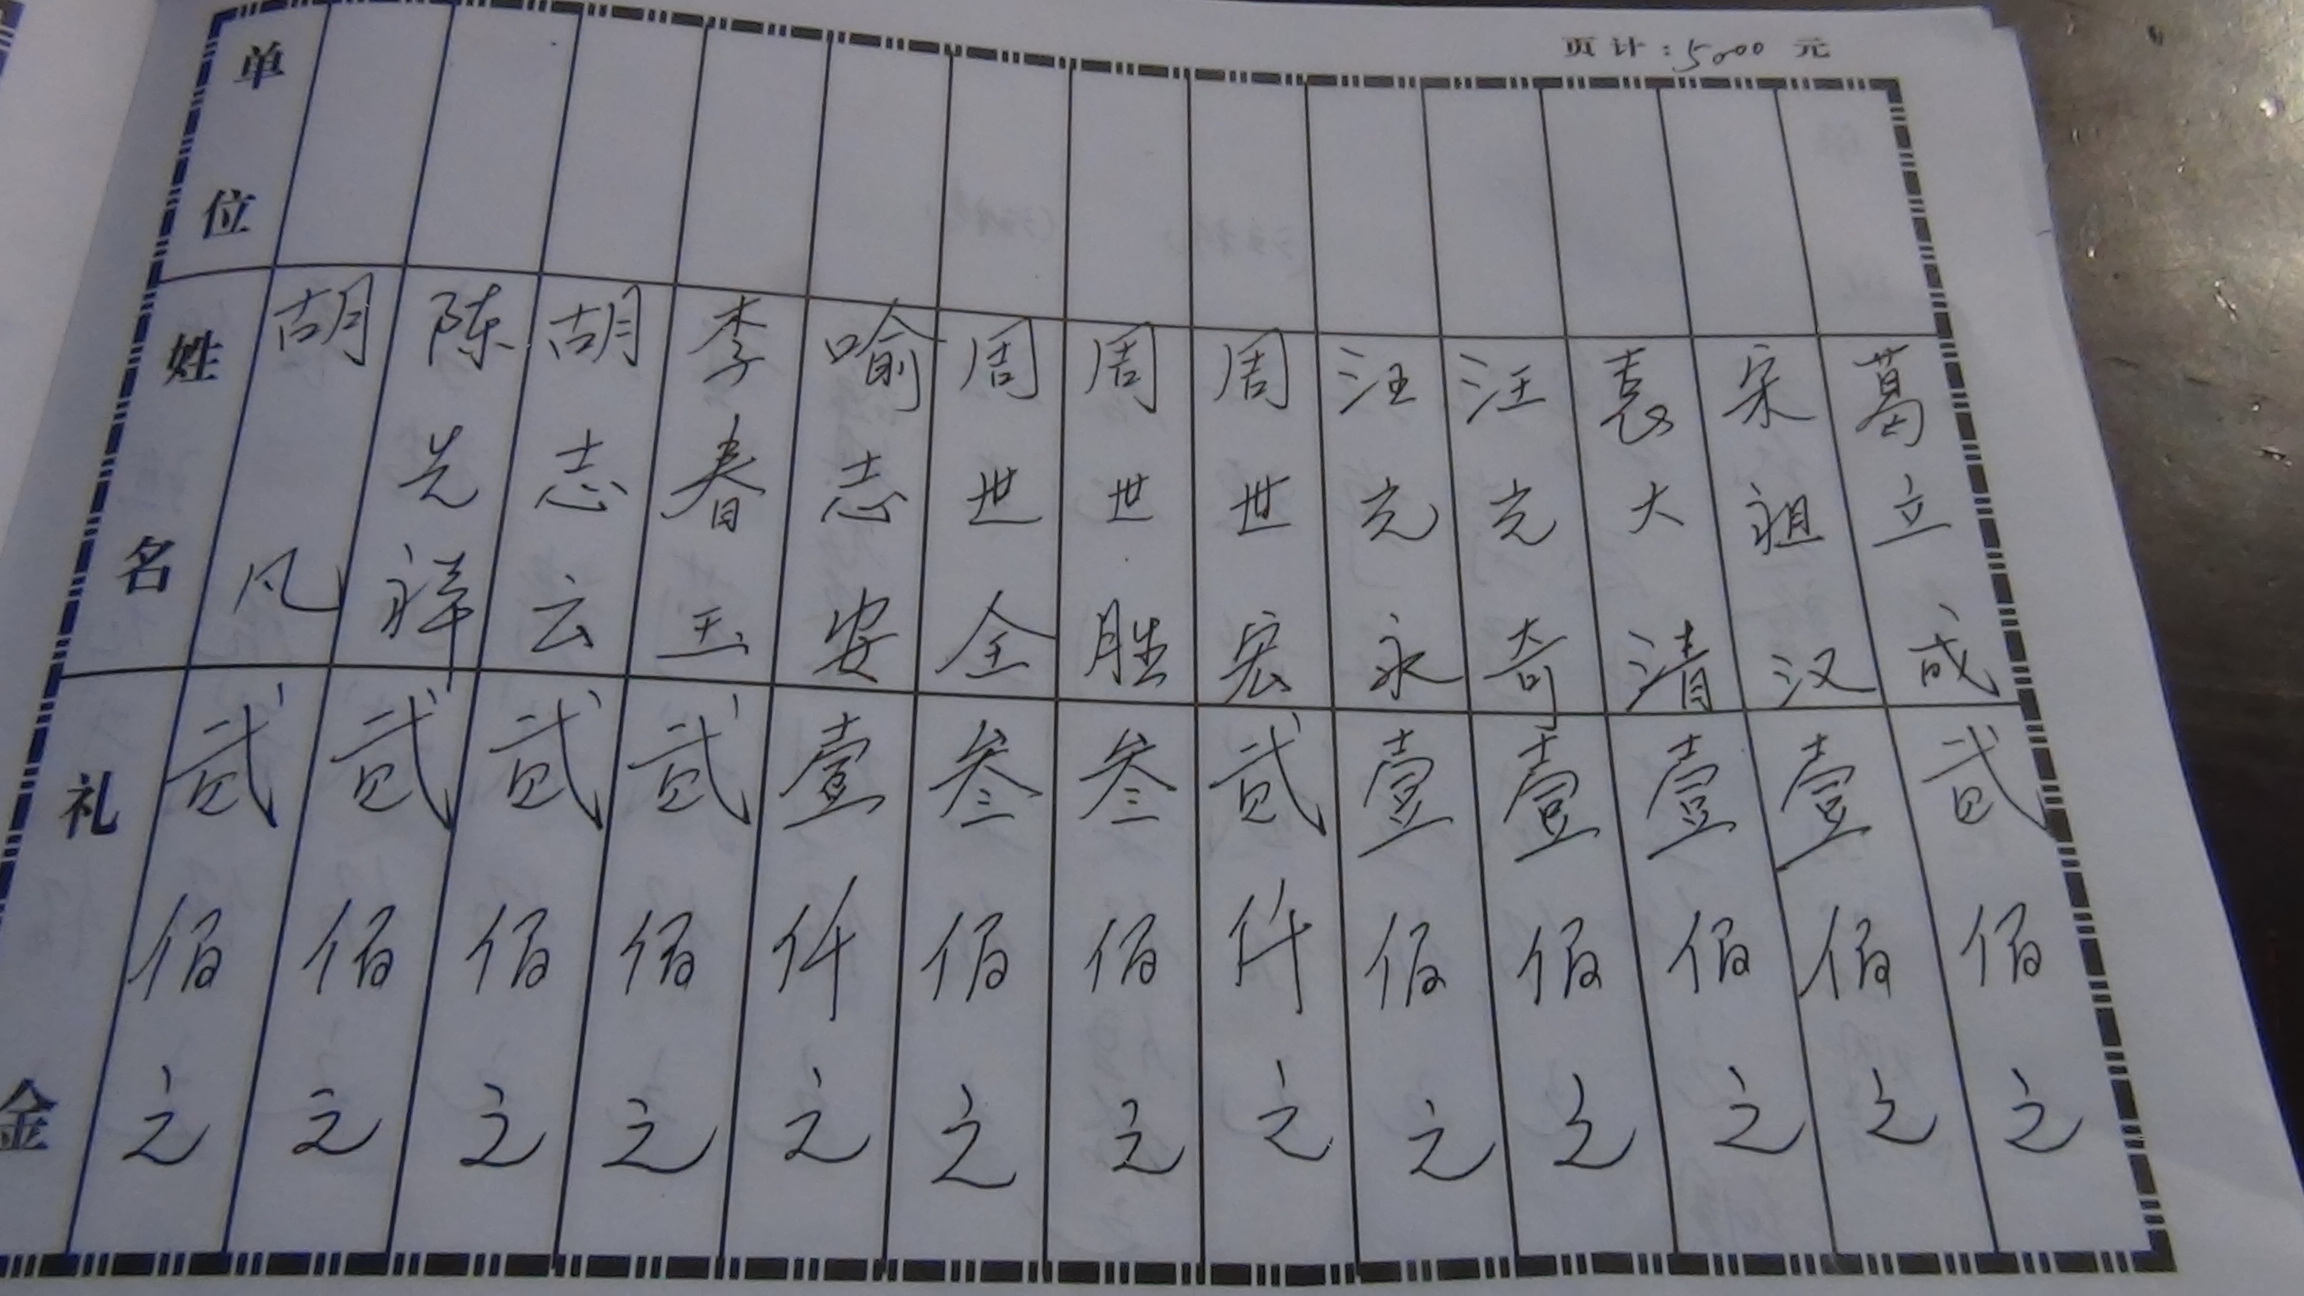 页计：5000 元
单位 姓名 礼金
胡凡 贰佰元
陈光祥 贰佰元
胡志云 贰佰元
李春玉 贰佰元
喻志安 壹仟元
周世全 叁佰元
周世胜 叁佰元
周世宏 贰仟元
汪光永 壹佰元
汪光奇 壹佰元
袁大清 壹佰元
宋祖汉 壹佰元
葛立成 贰佰元